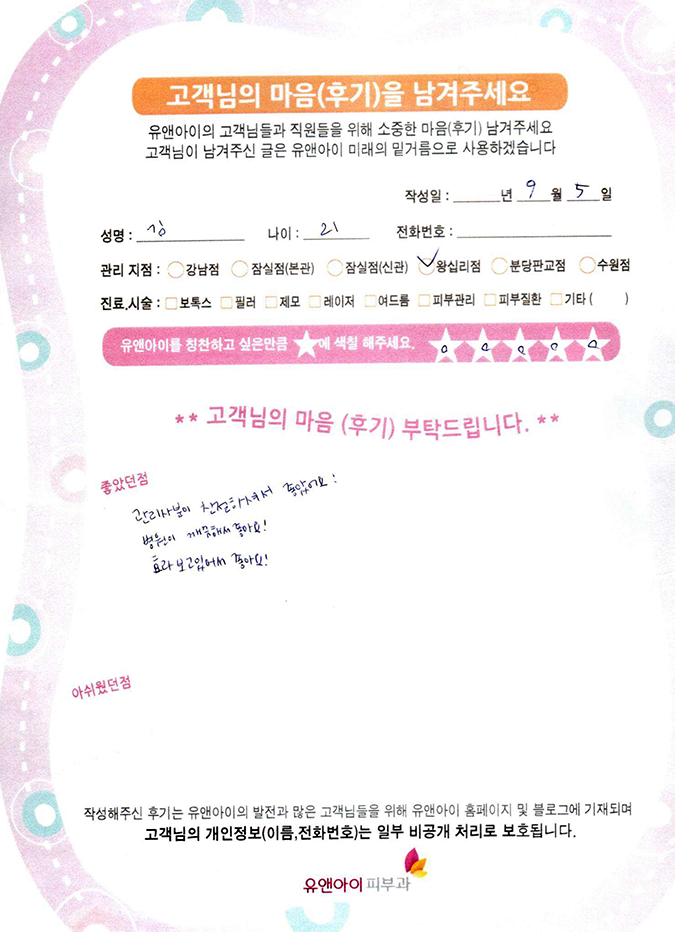 고객님의 마음(후기)을 남겨주세요
유앤아이의 고객님들과 직원들을 위해 소중한 마음(후기) 남겨주세요
고객님이 남겨주신 글은 유앤아이 미래의 밑거름으로 사용하겠습니다
작성일 : ______년 9 월 5 일
성명 : 김 나이 : 21 전화번호 :
관리 지점 : ○강남점 ○잠실점(본관) ○잠실점(신관) ○왕십리점 ○분당판교점 ○수원점
진료.시술 : □보톡스 □필러 □제모 □레이저 □여드름 □피부관리 □피부질환 □기타 ( )
유앤아이를 칭찬하고 싶은만큼 ★에 색칠 해주세요.
** 고객님의 마음 (후기) 부탁드립니다. **
좋았던점
관리사분이 친절하셔서 좋았어요!
병원이 깨끗해서 좋아요!
효과 보고있어서 좋아요!
아쉬웠던점
작성해주신 후기는 유앤아이의 발전과 많은 고객님들을 위해 유앤아이 홈페이지 및 블로그에 기재되며
고객님의 개인정보(이름,전화번호)는 일부 비공개 처리로 보호됩니다.
유앤아이 피부과